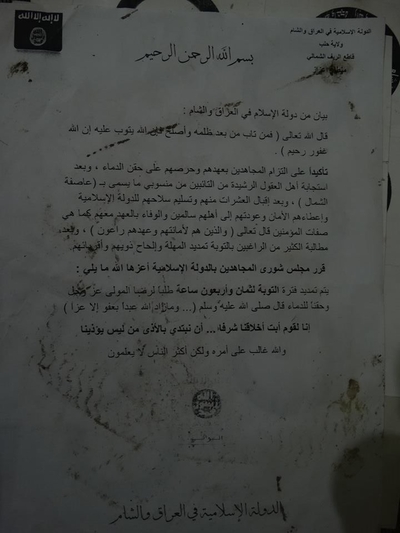 لا إله إلا الله
الدولة الإسلامية في العراق والشام
ولاية حلب
قاطع الريف الشمالي
بسم الله الرحمن الرحيم
بيان من دولة الإسلام في العراق والشام :
قال الله تعالى ( فمن تاب من بعد ظلمه وأصلح فإن الله يتوب عليه إن الله
غفور رحيم ) .
تأكيداً على التزام المجاهدين بعهدهم وحرصهم على حقن الدماء ، وبعد
استجابة أهل العقول الرشيدة من التائبين من منسوبي ما يسمى بـ (عاصفة
الشمال ) ، وبعد إقبال العشرات منهم وتسليم سلاحهم للدولة الإسلامية
وإعطاءهم الأمان وعودتهم إلى أهلهم سالمين والوفاء بالعهد معهم كما هي
صفات المؤمنين قال تعالى ( والذين هم لأمانتهم وعهدهم راعون ) ، وبعد
مطالبة الكثير من الراغبين بالتوبة تمديد المهلة وإلحاح ذويهم وأقربائهم
قرر مجلس شورى المجاهدين بالدولة الإسلامية أعزها الله ما يلي :
يتم تمديد فترة التوبة لثمان وأربعون ساعة طلباً لرضا المولى عز وجل
وحقناً للدماء قال صلى الله عليه وسلم (... وما زاد الله عبداً بعفو إلا عزاً )
إنا لقوم أبت أخلاقنا شرفاً... أن نبتدي بالأذى من ليس يؤذينا
والله غالب على أمره ولكن أكثر الناس لا يعلمون
الدولة الإسلامية في العراق والشام